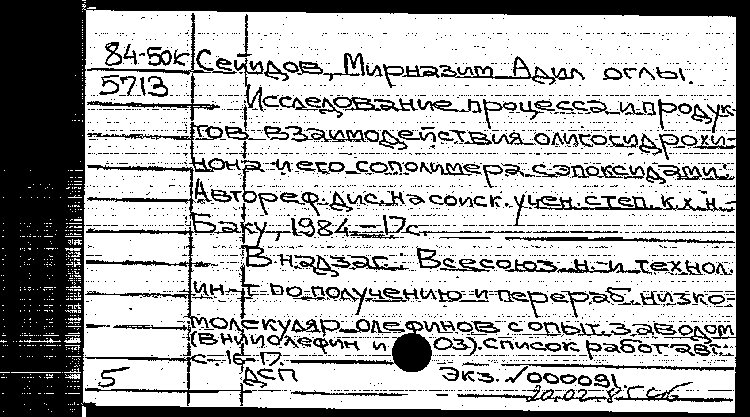 84-50к Сейидов, Мирназим Адил оглы.
5713 Исследование процесса и продук-
тов взаимодействия олигогидрохи-
нона и его сополимера с эпоксидами:
Автореф. дис. на соиск. учен. степ. к.х.н.-
Баку, 1984.-17с.
В надзаг.: Всесоюз. н.-и. технол.
ин-т по получению и перераб. низко-
молекуляр. олефинов с опыт. заводом
(ВНИИолефин и ОЗ). Список работ авт.:
с. 16-17.
5 ДСП Экз. √000091